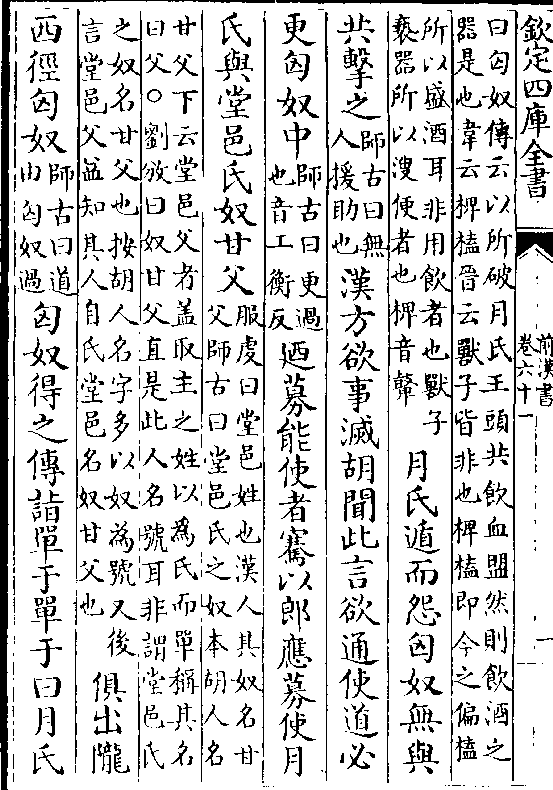 欽定四庫全書
前漢書
卷六十一
曰匈奴傳云以所破月氏王頭共飲血盟然則飲酒之
器是也韋云椑榼晉云獸子皆非也椑榼即今之偏榼
所以盛酒耳非用飲者也獸子
褻器所以溲便者也椑音鼙
月氏遁而怨匈奴無與
共擊之
師古曰無
人援助也
漢方欲事滅胡聞此言欲通使道必
更匈奴中
師古曰更過
也音工衡反
廼募能使者騫以郎應募使月
氏與堂邑氏奴甘父
服虔曰堂邑姓也漢人其奴名甘
父師古曰堂邑氏之奴本胡人名
甘父下云堂邑父者蓋取主之姓以為氏而單稱其名
曰父○劉攽曰奴甘父直是此人名號耳非謂堂邑氏
之奴名甘父也按胡人名字多以奴為號又後
言堂邑父益知其人自氏堂邑名奴甘父也
俱出隴
西徑匈奴
師古曰道
由匈奴過
匈奴得之傳詣單于單于曰月氏